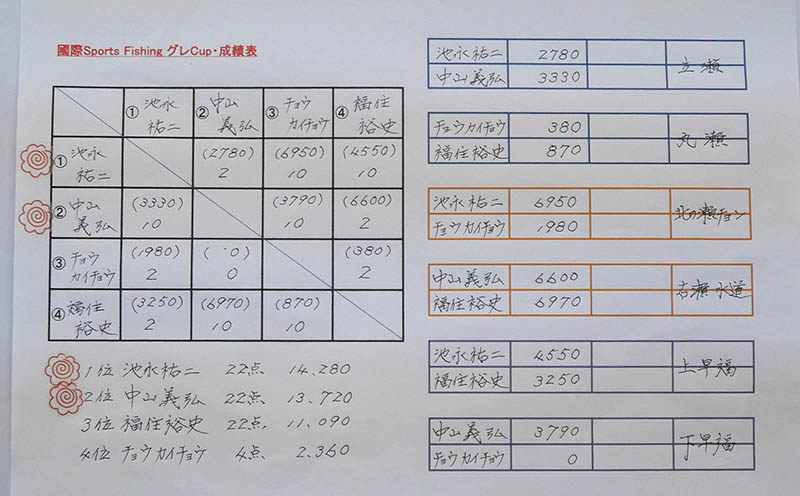 國際Sports Fishing グレCup・成績表
① 池永祐二 ② 中山義弘 ③ チョウカイチョウ ④ 福住裕史
① 池永祐二 (2780) 2 (6950) 10 (4550) 10
② 中山義弘 (3330) 10 (3790) 10 (6600) 2
③ チョウカイチョウ (1980) 2 (0) 0 (380) 2
④ 福住裕史 (3250) 2 (6970) 10 (870) 10
1位 池永祐二 22点 14.280
2位 中山義弘 22点. 13.720
3位 福住裕史 22点. 11.090
4位 チョウカイチョウ 4点. 2.360
池永祐二 2780 立瀬
中山義弘 3330
チョウカイチョウ 380 丸瀬
福住裕史 870
池永祐二 6950 北の瀬チョン
チョウカイチョウ 1980
中山義弘 6600 右瀬水道
福住裕史 6970
池永祐二 4550 上早福
福住裕史 3250
中山義弘 3790 下早福
チョウカイチョウ 0